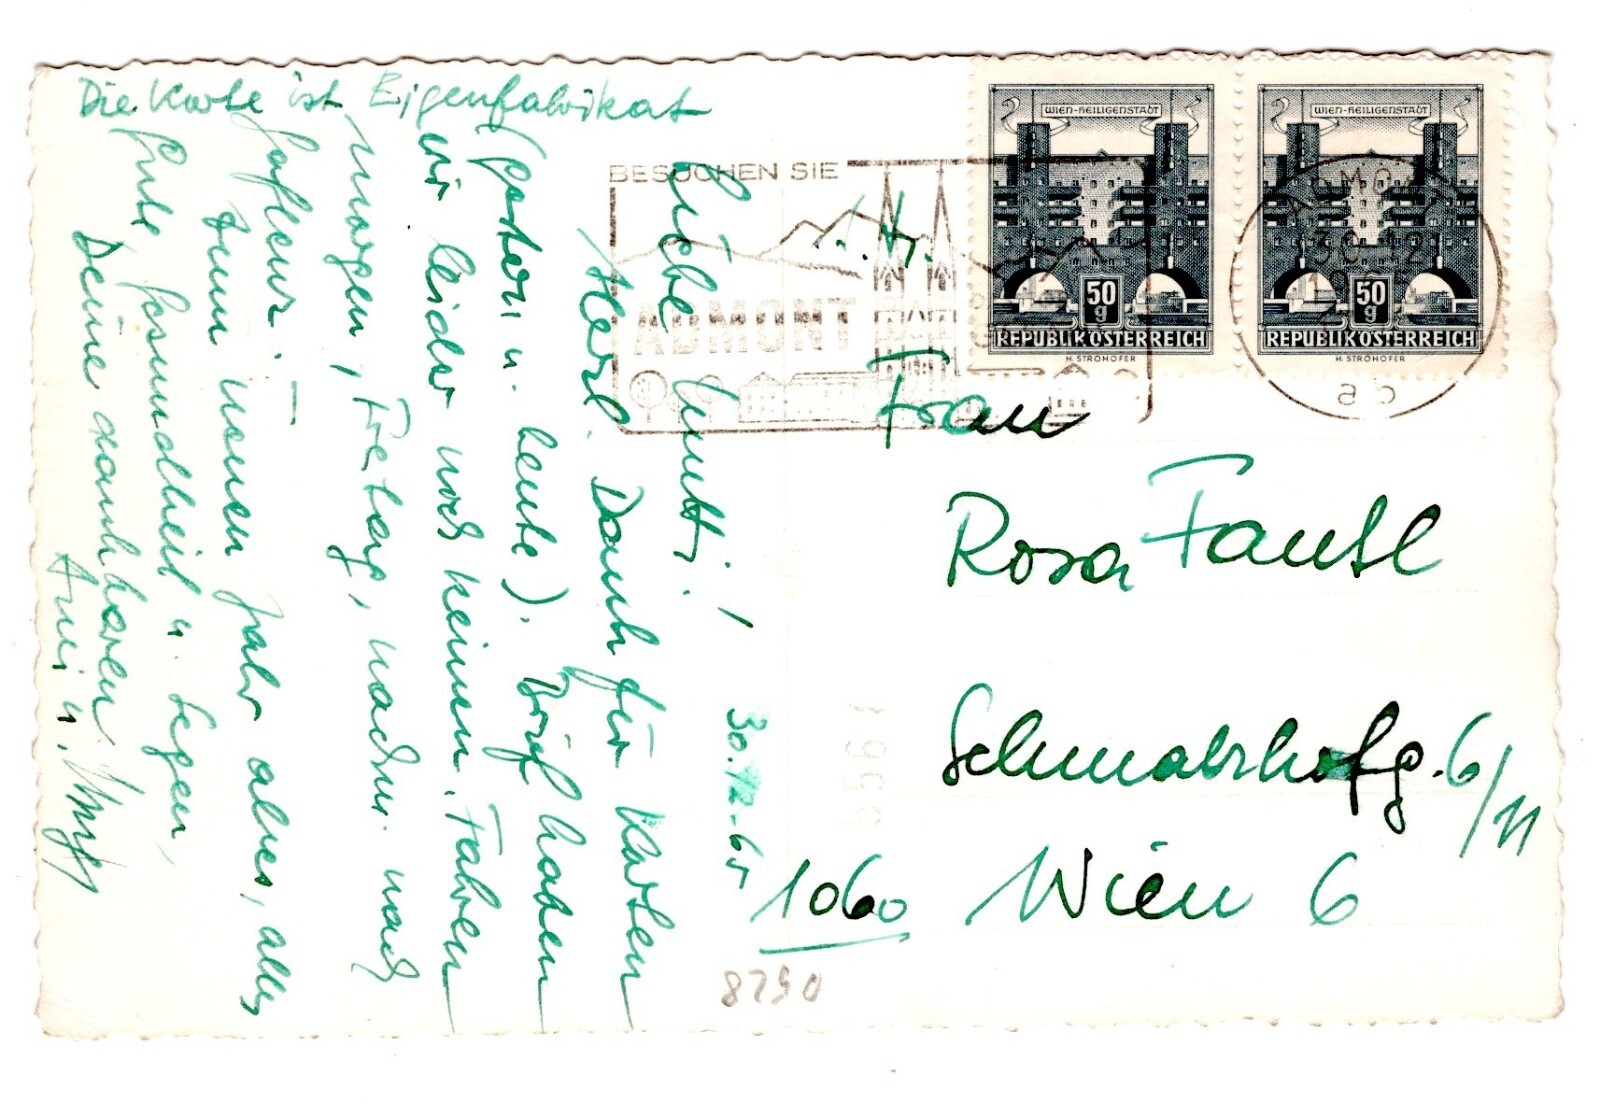 Die Karte ist Eigenfabrikat
30.12.65
Liebe Mutti!
Dank für Karten
(gestern u. heute). Brief haben
wir leider noch keinen. Fahren
morgen, Freitag, nachm. nach
Zum neuen Jahr alles, alles
Gute, Gesundheit u. Segen,
Deine dankbaren
BESUCHEN SIE
ADMONT
WIEN-HEILIGENSTADT
50
g
REPUBLIK ÖSTERREICH
H. STROHOFER
WIEN-HEILIGENSTADT
50
g
REPUBLIK ÖSTERREICH
H. STROHOFER
ab
Frau
Rosa Fantl
Schmalzhofg. 6/11
1060 Wien 6
8790